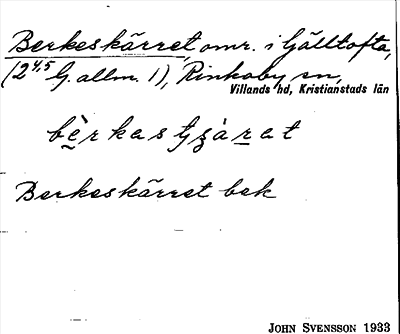 Berkeskärret, omr. i Gälltofta,
(2⁴,⁵ G. allm. 1), Rinkaby sn,
Villands hd, Kristianstads län
Berkeskärret bek
JOHN SVENSSON 1933